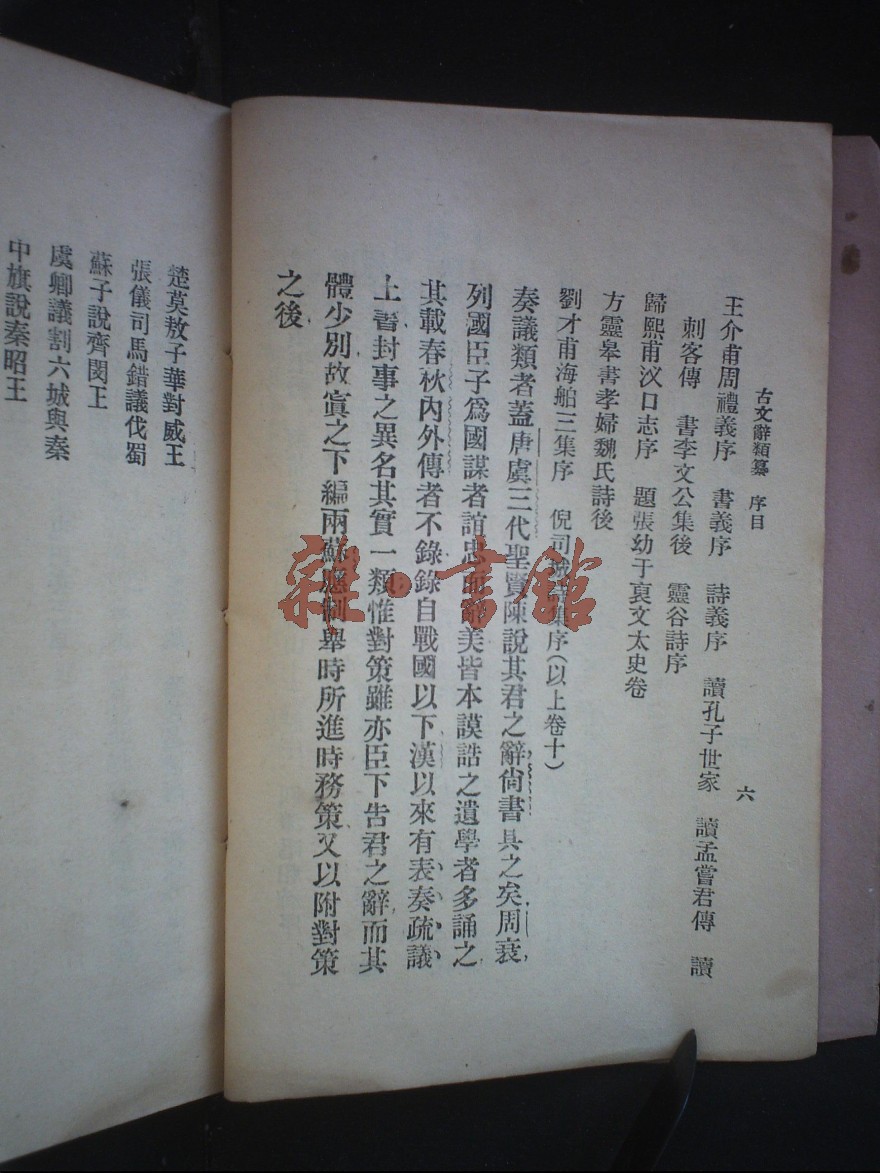 古文辭類纂 序目 六
王介甫周禮義序 書義序 詩義序 讀孔子世家 讀孟嘗君傳 讀
刺客傳 書李文公集後 靈谷詩序
歸熙甫汊口志序 題張幼于裒文太史卷
方靈皋書孝婦魏氏詩後
劉才甫海舶三集序 倪司城詩集序(以上卷十)
奏議類者蓋唐虞三代聖賢陳說其君之辭尙書具之矣周衰
列國臣子爲國謀者誼忠而辭美皆本謨誥之遺學者多誦之
其載春秋內外傳者不錄錄自戰國以下漢以來有表奏疏議
上書封事之異名其實一類惟對策雖亦臣下告君之辭而其
體少別故寘之下編兩蘇應制舉時所進時務策又以附對策
之後
楚莫敖子華對威王
張儀司馬錯議伐蜀
蘇子說齊閔王
虞卿議割六城與秦
中旗說秦昭王
雜·書館